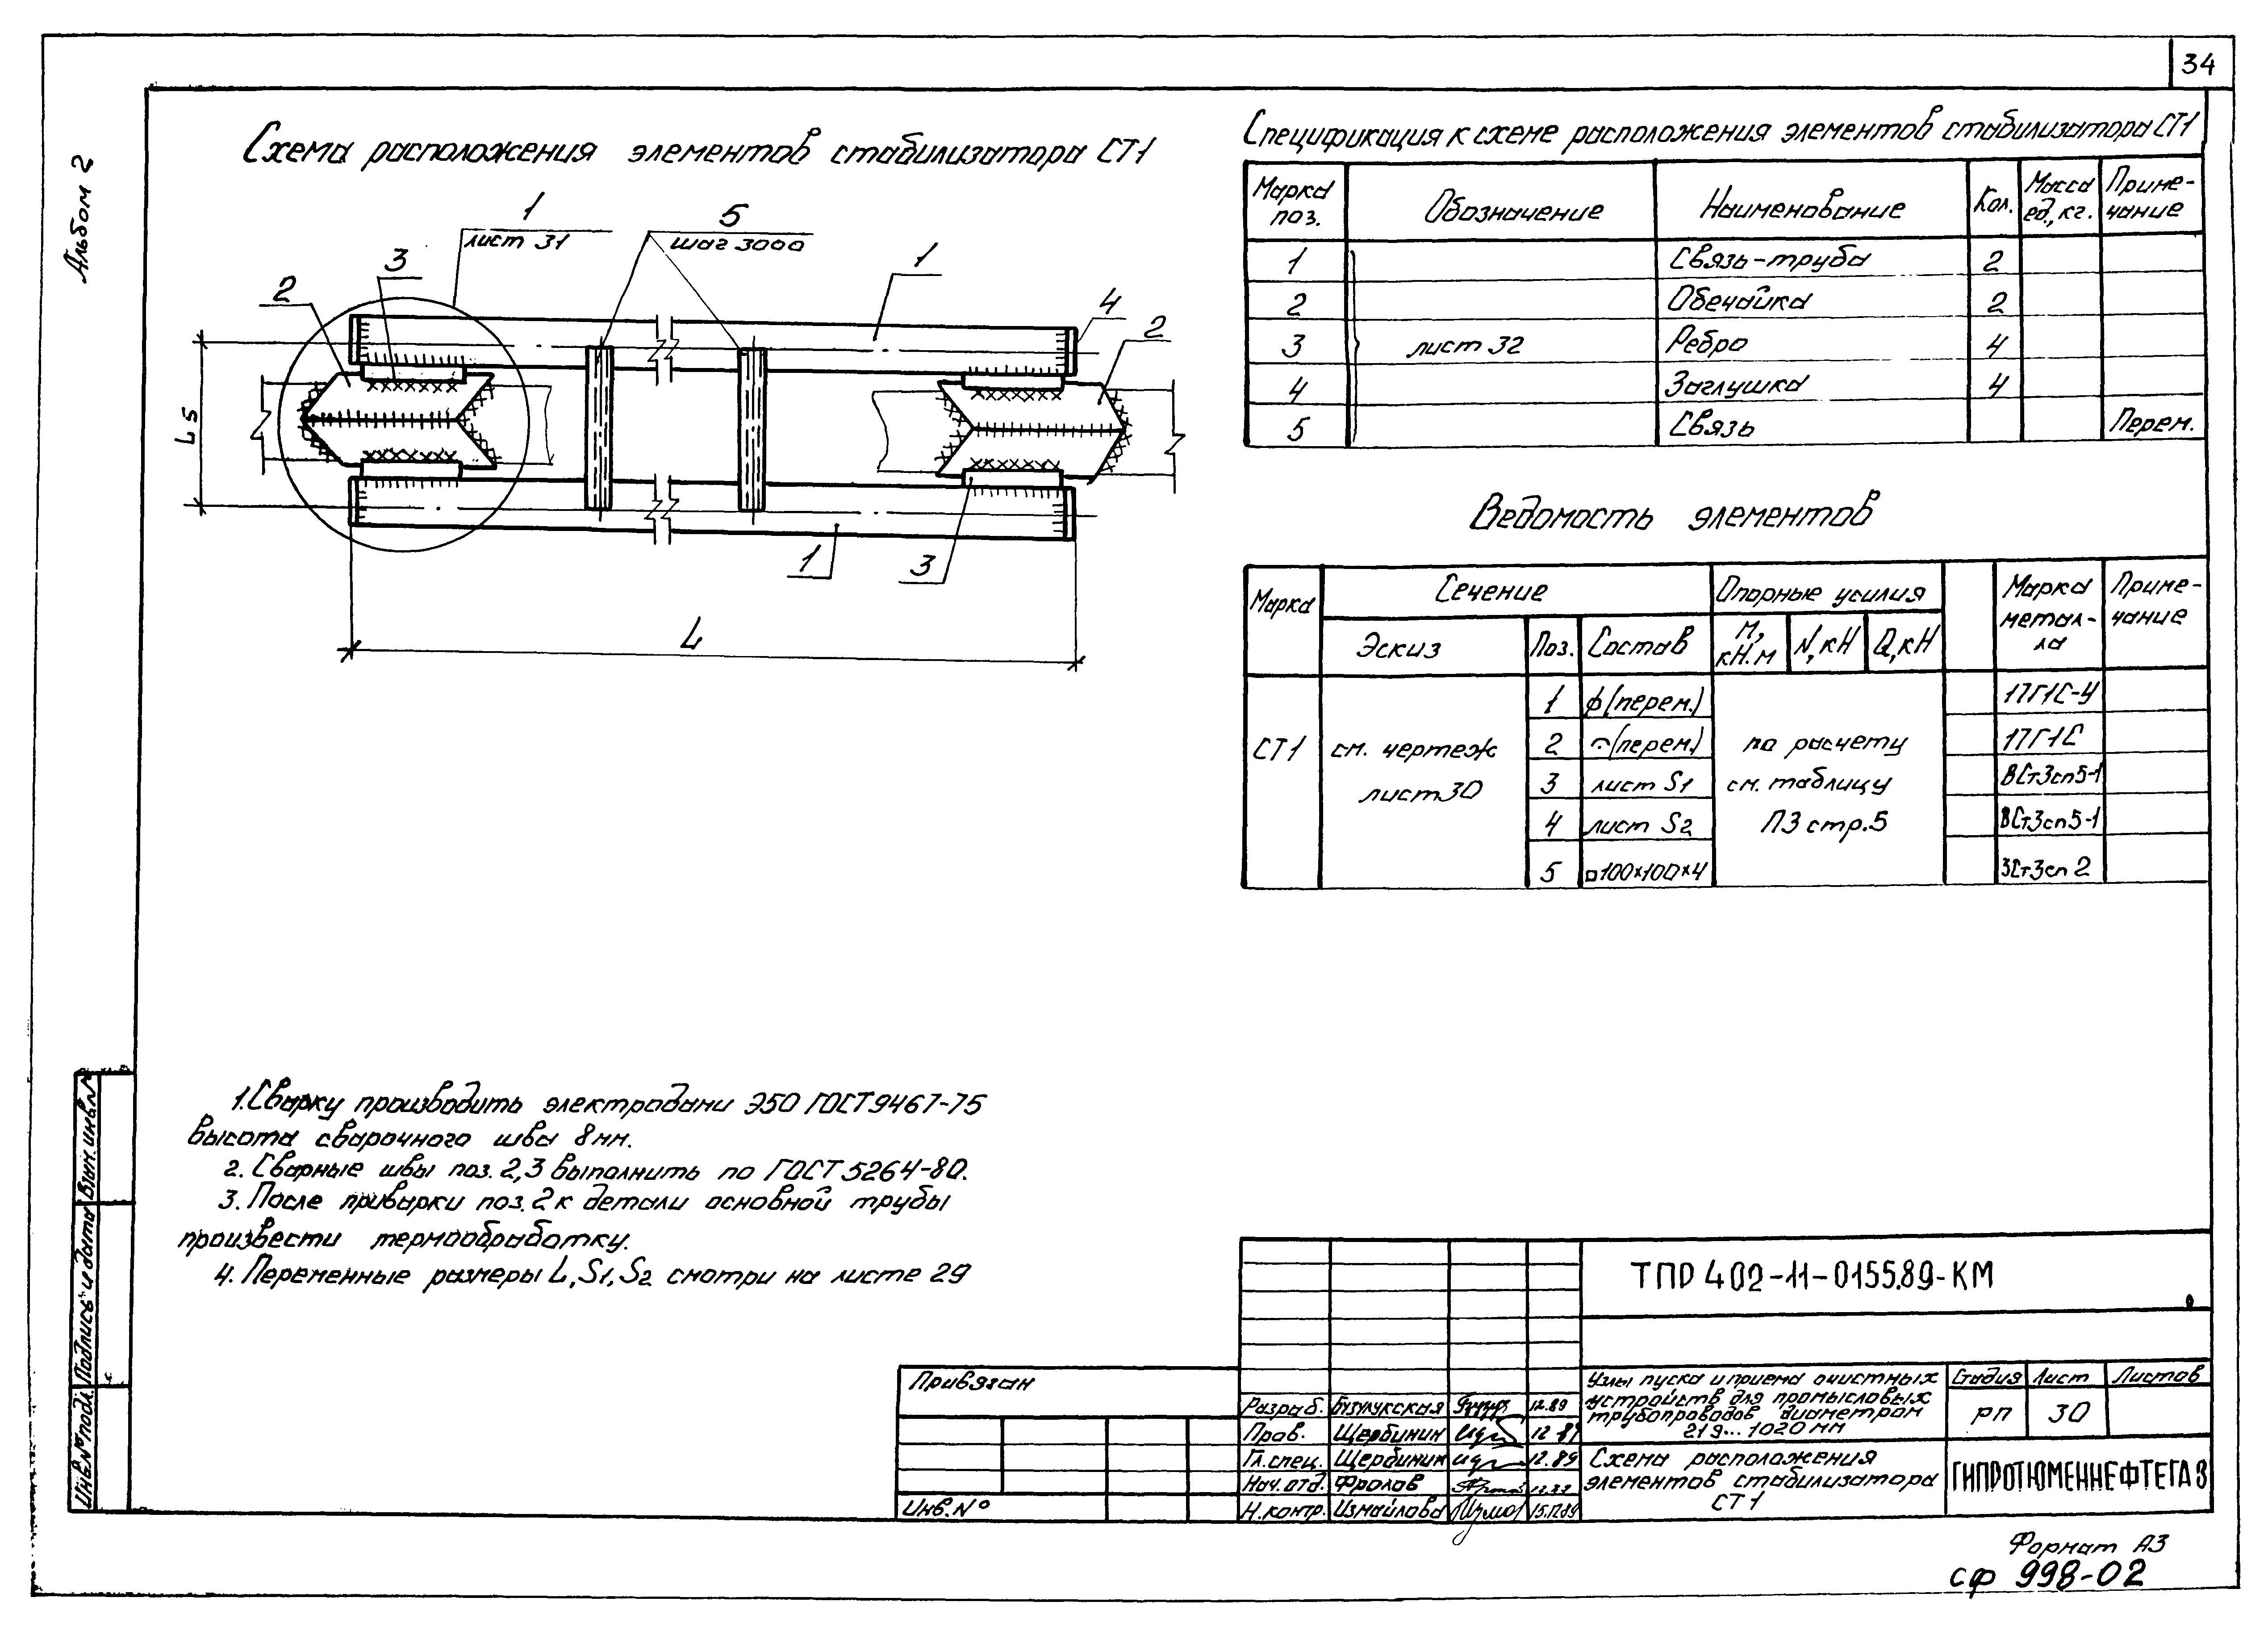 34
Альбом 2
Схема расположения элементов стабилизатора СТ1
1
лист 31
5
шаг 3000
3
2
1
4
2
Ls
1
3
L
Спецификация к схеме расположения элементов стабилизатора СТ1
Марка поз. Обозначение Наименование Кол. Масса ед, кг. Приме-чание
1 Связь-труба 2
2 Обечайка 2
3 лист 32 Ребро 4
4 Заглушка 4
5 Связь Перем.
Ведомость элементов
Марка Сечение Опорные усилия Марка метал-ла Приме-чание
Эскиз Поз. Состав М, кН.м N, кН Q, кН
1 ф(перем.) 17Г1С-У
СТ1 см. чертеж 2 (перем.) по расчету 17Г1С
лист 30 3 лист S1 см. таблицу ВСт3сп5-1
4 лист S2 ПЗ стр.5 ВСт3сп5-1
5 □100×100×4 3Ст3сп2
1. Сварку производить электродами Э50 ГОСТ 9467-75
высота сварочного шва 8мм.
2. Сварные швы поз. 2,3 выполнить по ГОСТ 5264-80.
3. После приварки поз. 2 к детали основной трубы
произвести термообработку.
4. Переменные размеры L, S1, S2 смотри на листе 29
Инв.№ подл. Подпись и дата Взам. инв.№
Привязан
Инв.№
ТПР 402-11-0155.89-КМ
Разраб. Бузулукская 12.89
Пров. Щербинин 12.89
Гл. спец. Щербинин 12.89
Нач. отд. Фролов 12.89
Н. контр. Измайлова 15.12.89
Узлы пуска и приема очистных
устройств для промысловых
трубопроводов диаметром
219...1020 мм
Стадия Лист Листов
РП 30
Схема расположения
элементов стабилизатора
СТ1
ГИПРОТЮМЕННЕФТЕГАЗ
Формат А3
сф 998-02